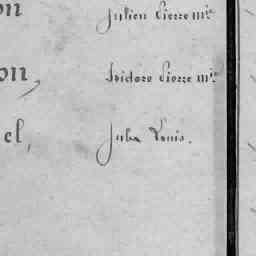 on Julien Pierre mie
on, Isidore Pierre mie
el, Jules Louis.